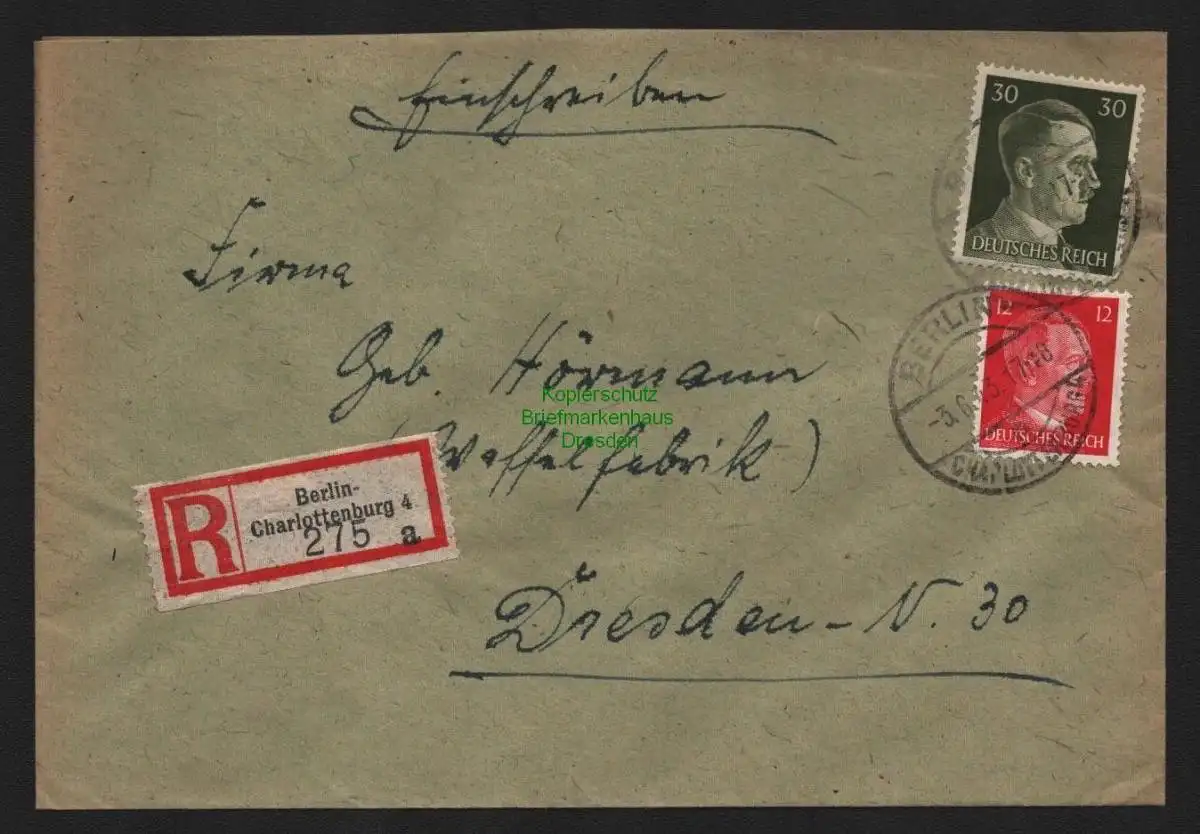 Einschreiben
30 30
DEUTSCHES REICH
Firma
12 12
DEUTSCHES REICH
BERLIN
CHARLOTTENBURG
Geb. Hörmann
Kopierschutz
Briefmarkenhaus
Dresden
(Waffelfabrik)
R
Berlin-
Charlottenburg 4
275 a
Dresden - N. 30